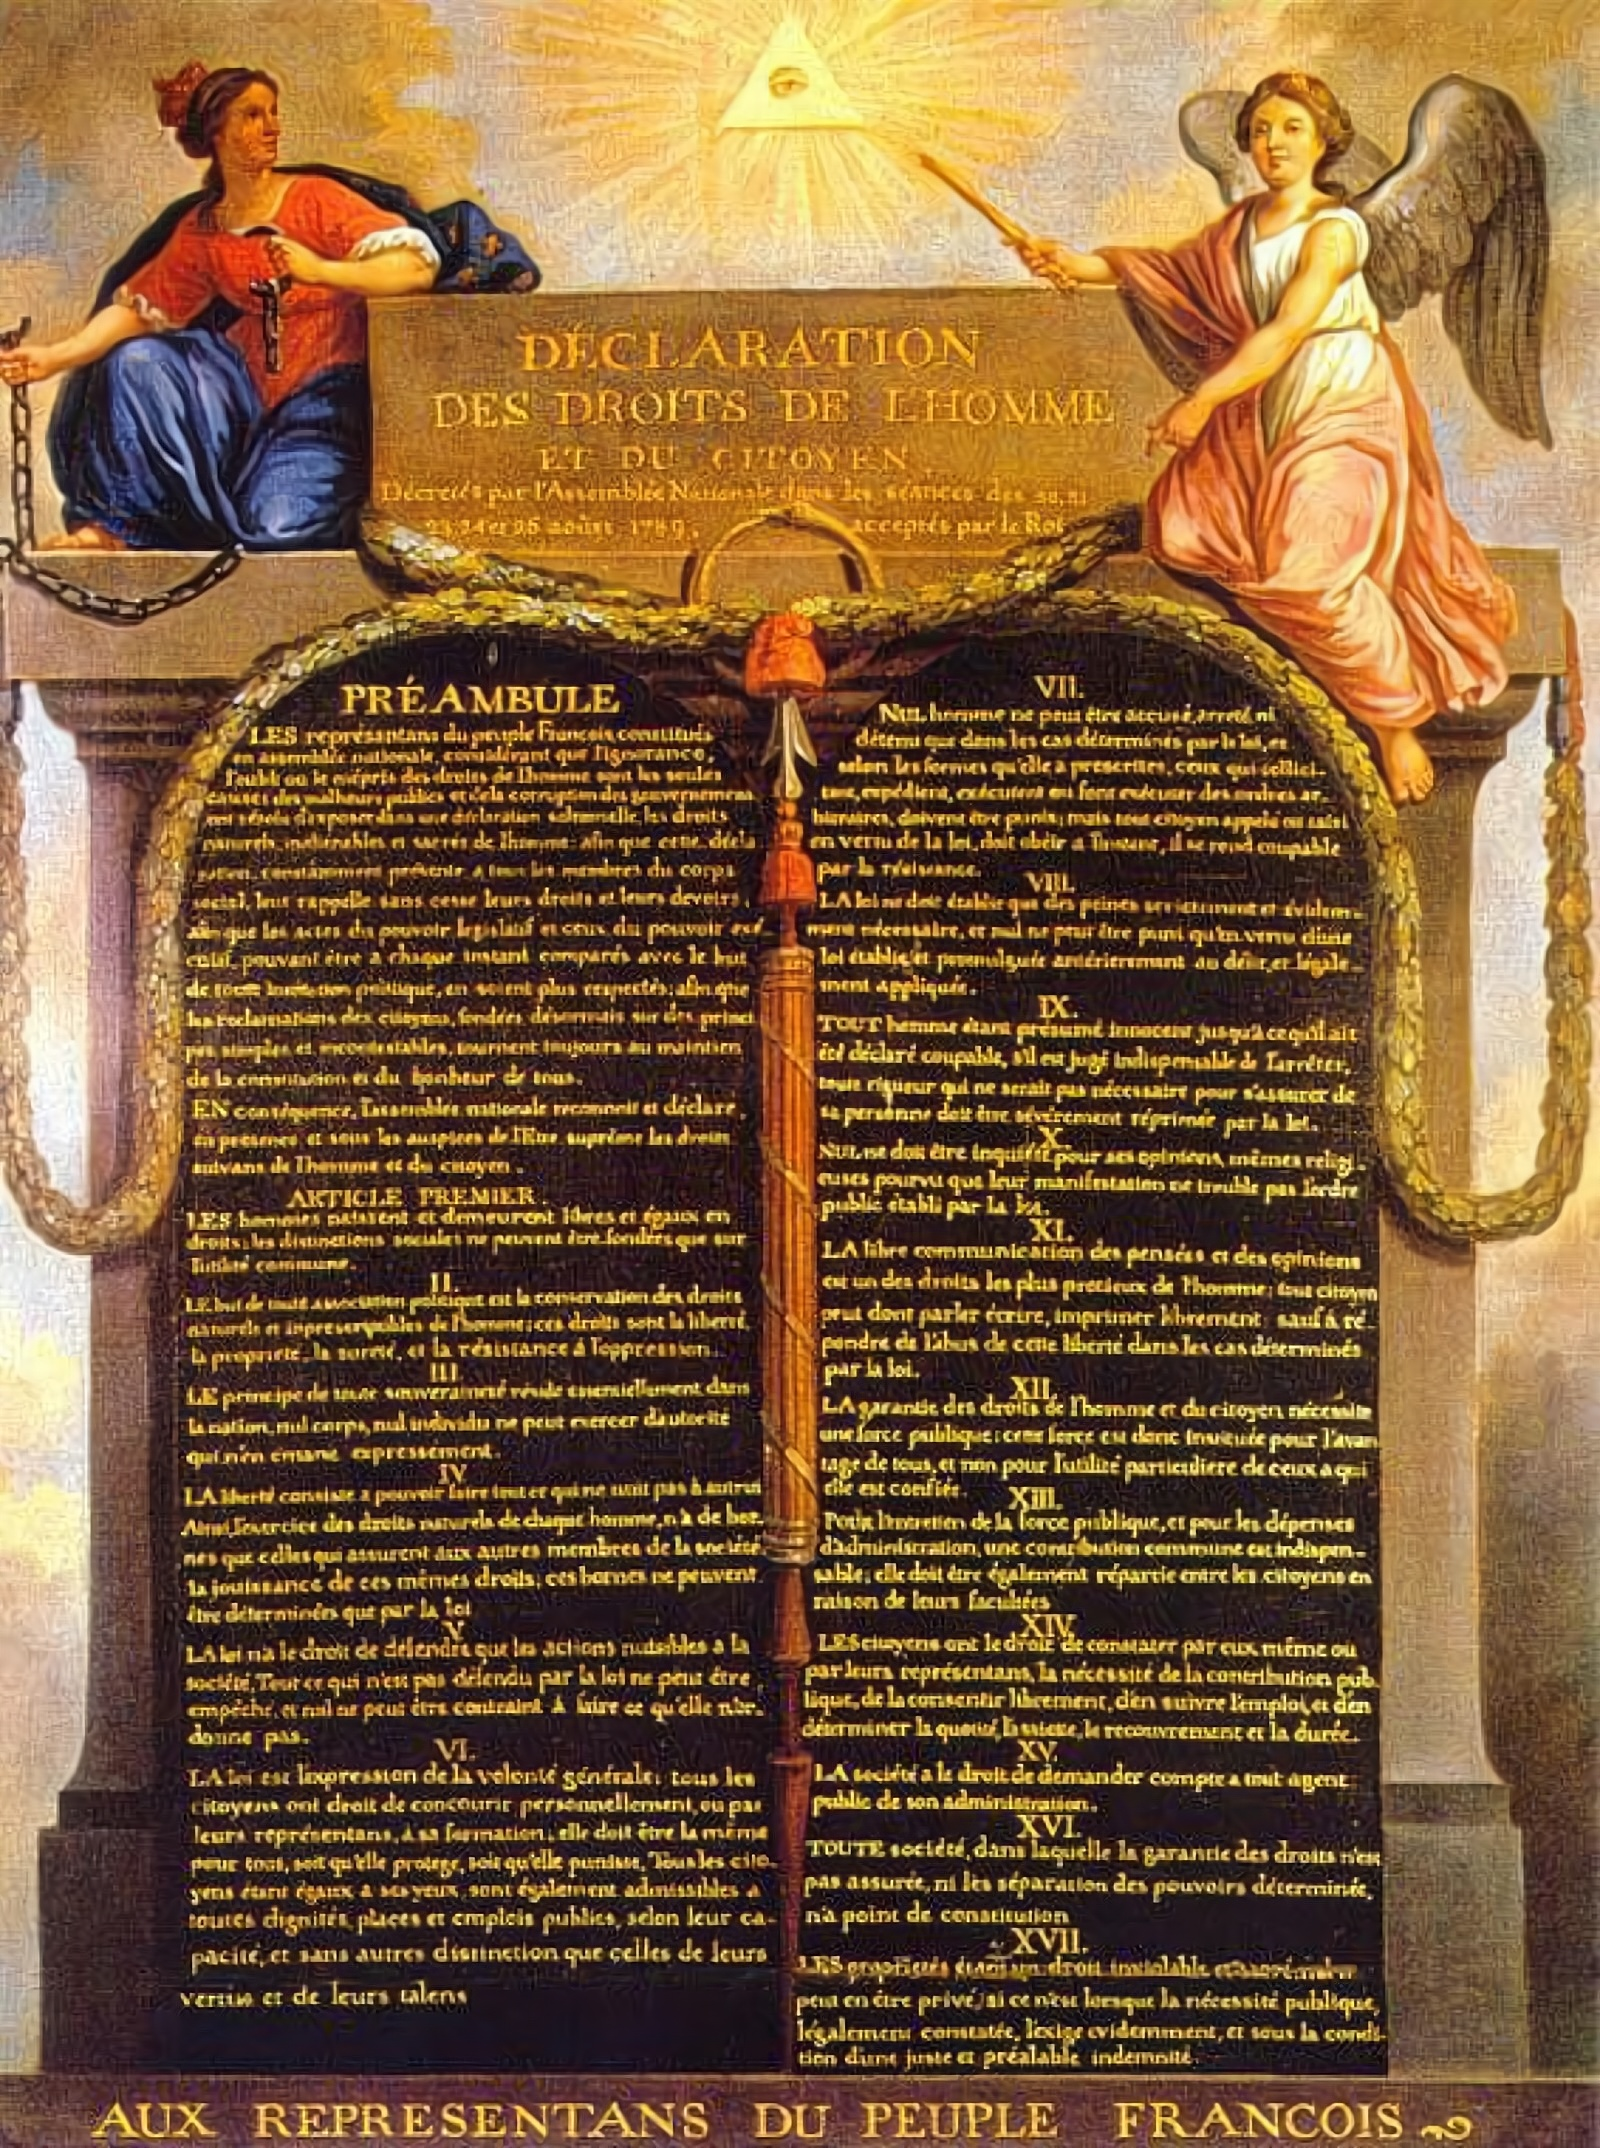 DÉCLARATION
DES DROITS DE L'HOMME
ET DU CITOYEN
Décretés par l'Assemblée Nationale dans les séances des 20, 21
23, 24 et 26 août 1789, acceptés par le Roi
PRÉAMBULE
LES représantans du peuple François constitués
en assemblée nationale, considérant que l'ignorance,
l'oubli ou le mépris des droits de l'homme sont les seules
causes des malheurs publics et de la corruption des gouvernemens
ont résolu d'exposer dans une déclaration solemnelle, les droits
naturels, inaliénables et sacrés de l'homme: afin que cette décla
ration, constamment présente a tous les membres du corps
social, leur rappelle sans cesse leurs droits et leurs devoirs,
afin que les actes du pouvoir legislatif et ceux du pouvoir exé
cutif, pouvant être a chaque instant comparés avec le but
de toute institution politique, en soient plus respectés; afin que
les reclamations des citoyens, fondées désormais sur des princi
pes simples et incontestables, tournent toujours au maintien
de la constitution et du bonheur de tous.
EN conséquence, l'assemblée nationale reconnoit et déclare,
en presence et sous les auspices de l'Etre suprême les droits
suivans de l'homme et du citoyen.
ARTICLE PREMIER.
LES hommes naissent et demeurent libres et égaux en
droits; les distinctions sociales ne peuvent être fondées que sur
l'utilité commune.
II.
LE but de toute association politique est la conservation des droits
naturels et inprescriptibles de l'homme; ces droits sont la liberté,
la propriété, la sureté, et la résistance à l'oppression.
III.
LE principe de toute souveraineté réside essentiellement dans
la nation, nul corps, nul individu ne peut exercer d'autorité
qui n'en emane expressement.
IV.
LA liberté consiste a pouvoir faire tout ce qui ne nuit pas à autrui
Ainsi, l'exercice des droits naturels de chaque homme, n'a de bor-
nes que celles qui assurent aux autres membres de la société
la jouissance de ces mêmes droits; ces bornes ne peuvent
être déterminées que par la loi
V.
LA loi n'a le droit de défendre que les actions nuisibles a la
société. Tout ce qui n'est pas défendu par la loi ne peut être
empêché, et nul ne peut être contraint à faire ce qu'elle n'or-
donne pas.
VI.
LA loi est l'expression de la volonté générale; tous les
citoyens ont droit de concourir personnellement, ou par
leurs représentans, à sa formation; elle doit être la même
pour tous, soit qu'elle protege, soit qu'elle punisse. Tous les cito-
yens étant égaux a ses yeux, sont également admissibles a
toutes dignités, places et emplois publics, selon leur ca-
pacité, et sans autres distinction que celles de leurs
vertus et de leurs talens
VII.
NUL homme ne peut être accusé, arreté, ni
détenu que dans les cas déterminés par la loi, et
selon les formes qu'elle a prescrites, ceux qui sollici-
tent, expédient, exécutent ou font exécuter des ordres ar-
bitraires, doivent être punis; mais tout citoyen appelé ou saisi
en vertu de la loi, doit obéir a l'instant, il se rend coupable
par la résistance.
VIII.
LA loi ne doit établir que des peines strictement et évidem-
ment nécessaire, et nul ne peut être puni qu'en vertu d'une
loi établie et promulguée antérierement au délit, et légale-
ment appliquée.
IX.
TOUT homme étant présumé innocent jusqu'à ce qu'il ait
été déclaré coupable, s'il est jugé indispensable de l'arrêter,
toute rigueur qui ne serait pas nécessaire pour s'assurer de
sa personne doit être sévèrement réprimée par la loi.
X.
NUL ne doit être inquiété pour ses opinions, mêmes religi-
euses pourvu que leur manifestation ne trouble pas l'ordre
public établi par la loi.
XI.
LA libre communication des pensées et des opinions
est un des droits les plus precieux de l'homme; tout citoyen
peut dont parler écrire, imprimer librement: sauf à ré-
pondre de l'abus de cette liberté dans les cas déterminés
par la loi.
XII.
LA garantie des droits de l'homme et du citoyen nécessite
une force publique; cette force est donc instituée pour l'avan
tage de tous, et non pour l'utilité particuliere de ceux a qui
elle est confiée.
XIII.
Pour l'entretien de la force publique, et pour les dépenses
d'administration, une contribution commune est indispen-
sable; elle doit être également répartie entre les citoyens en
raison de leurs facultées
XIV.
LES citoyens ont le droit de constater par eux même ou
par leurs représentans, la nécessité de la contribution pub-
lique, de la consentir librement, d'en suivre l'emploi, et d'en
déterminer la quotité, l'assiette, le recouvrement et la durée.
XV.
LA société a le droit de demander compte a tout agent
public de son administration.
XVI.
TOUTE société, dans laquelle la garantie des droits n'est
pas assurée, ni les séparation des pouvoirs déterminée,
n'a point de constitution
XVII.
LES propriétés étant un droit inviolable et sacré, nul ne
peut en être privé, si ce n'est lorsque la nécessité publique,
légalement constatée, l'exige evidemment, et sous la condi-
tion d'une juste et préalable indemnité.
AUX REPRESENTANS DU PEUPLE FRANCOIS